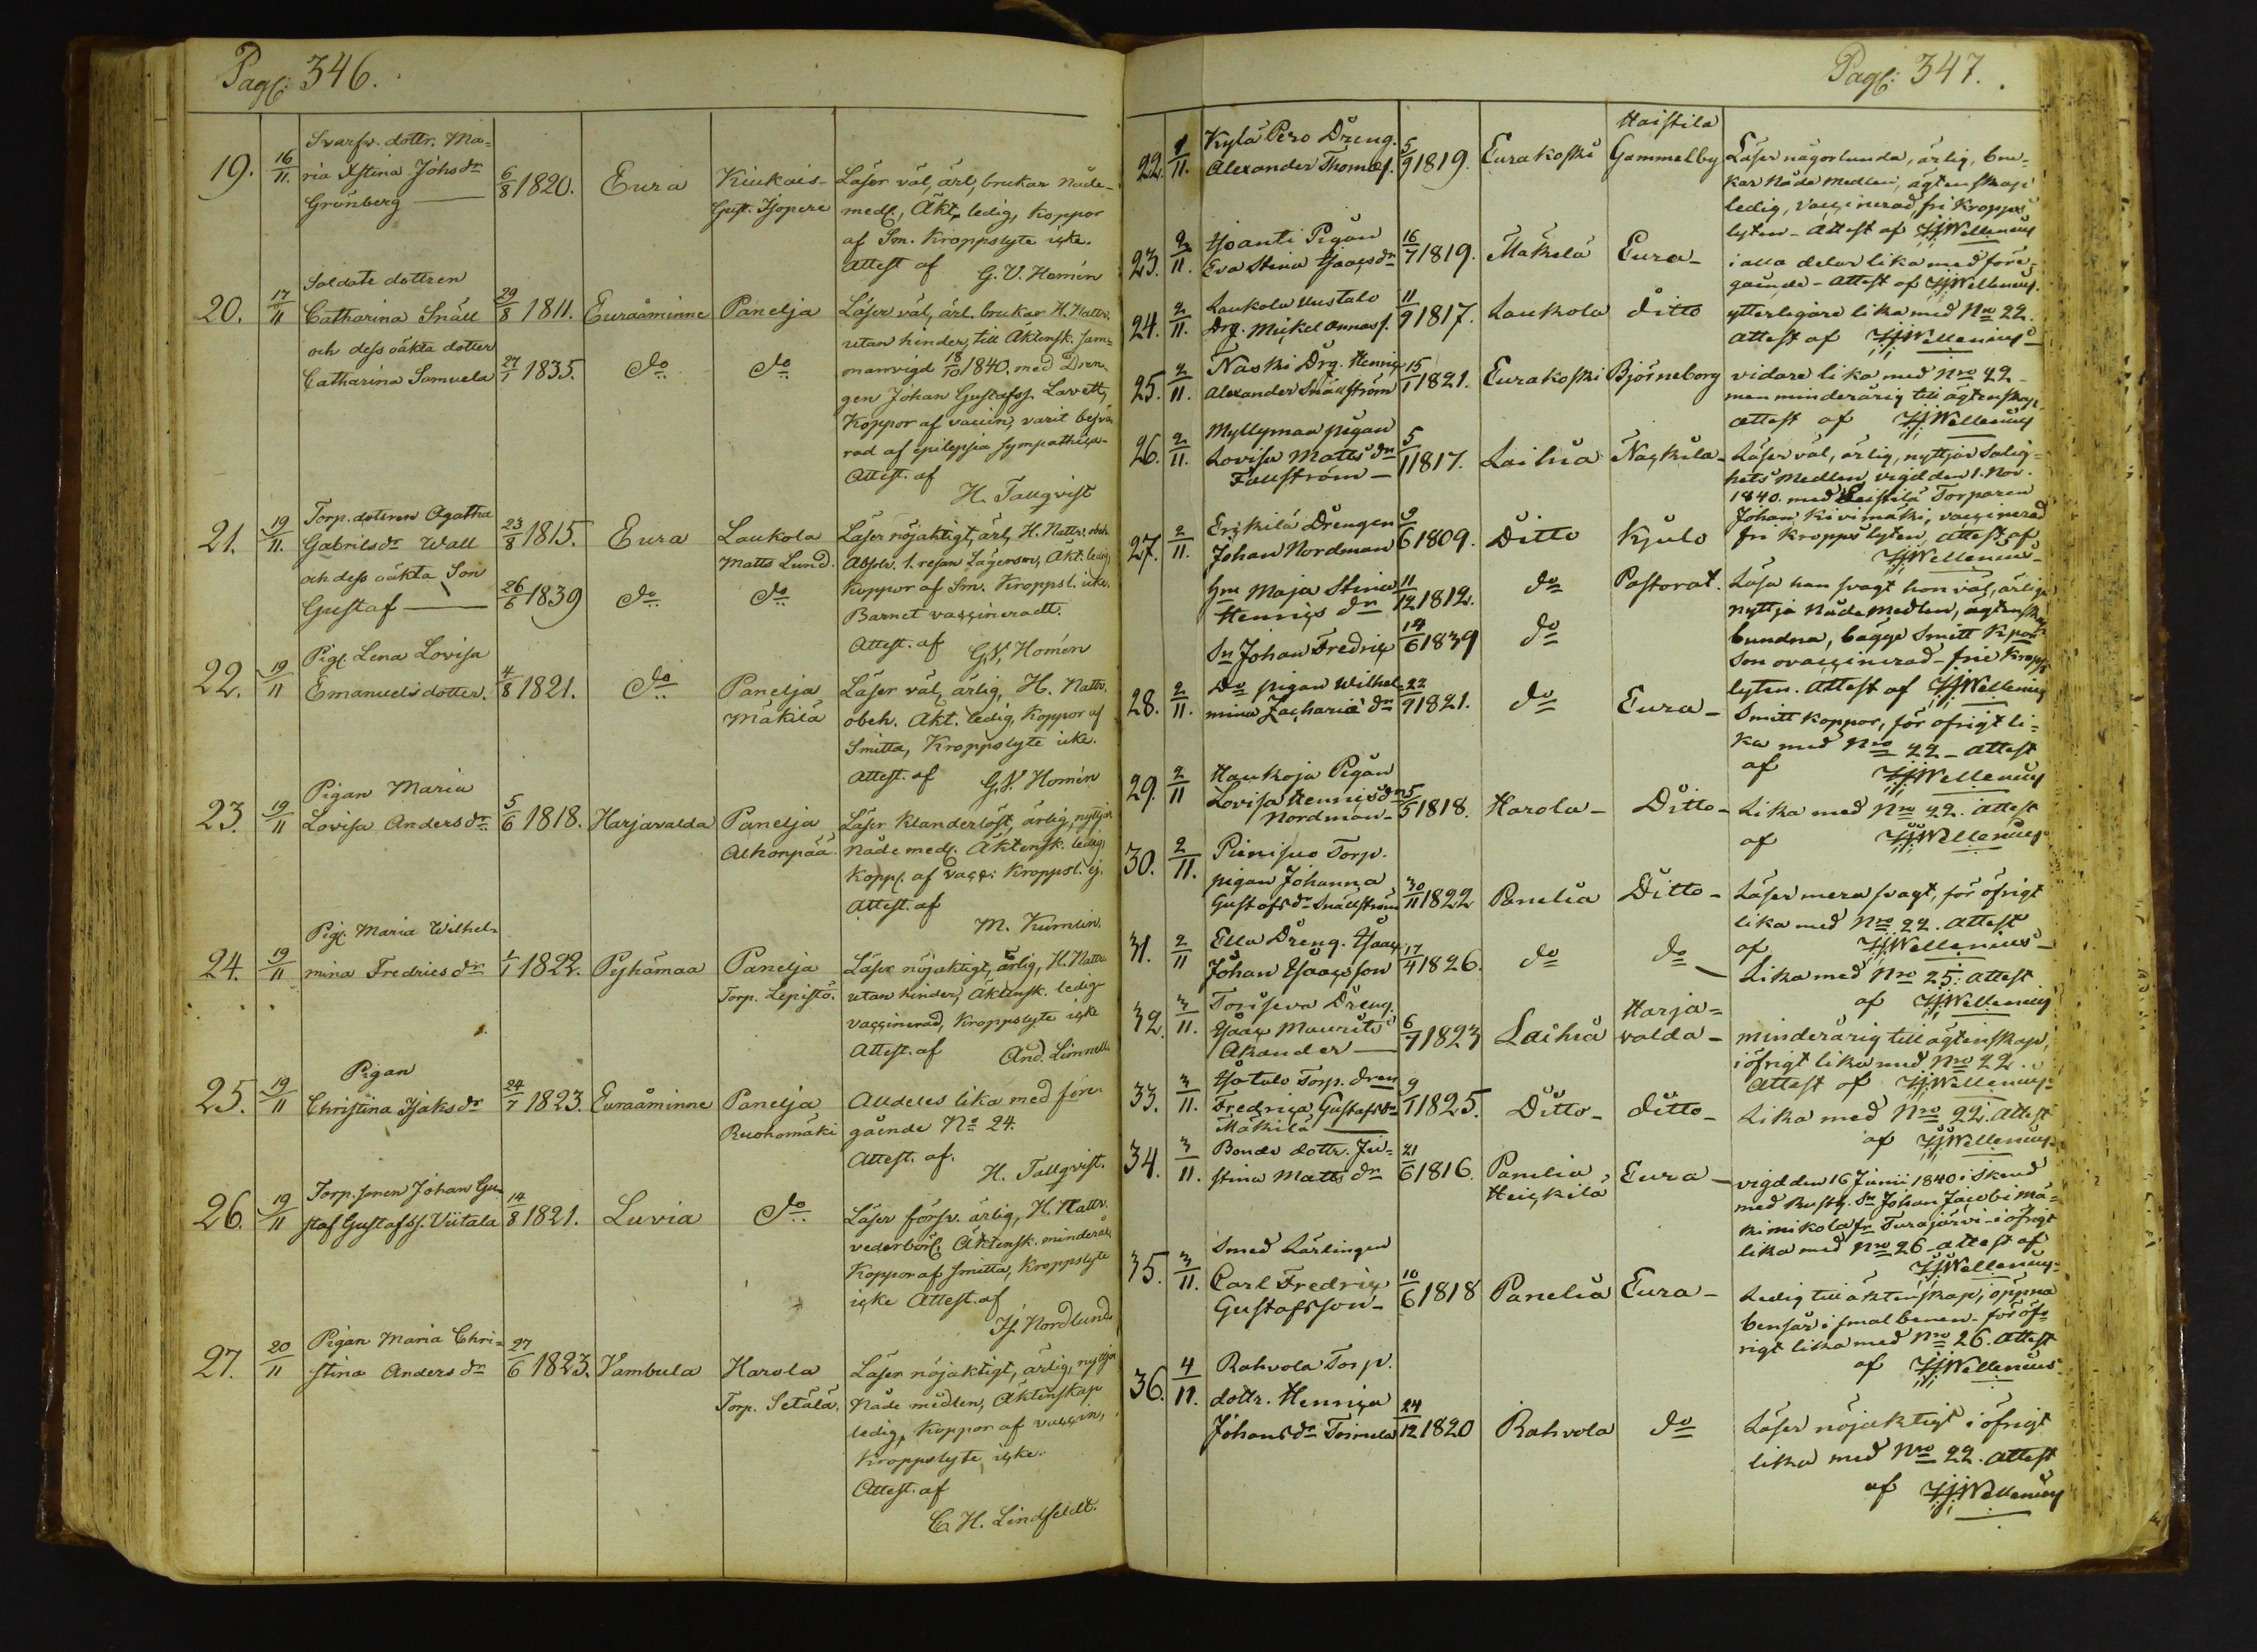 Pag: 346.
19. 16/11. Svarfv. dottr. Ma=
ria Xstina Johs dr
Grönberg — 6/8 1820. Eura Kiukais-
Gust. Isopere
Läser väl, ärl, brukar nåde-
medl, Äkt. ledig, koppor
af Sm. Kroppslyte icke.
Attest af G. V. Homén
20. 17/11 Soldate dottren
Catharina Snäll 29/8 1811. Euraåminne Panelja
och dess oäkta dotter
Catharina Samuela 27/1 1835. do do
Läser väl, ärl. brukar H. Nattv.
utan hinder, till Äktensk. sam=
manvigd 18/10 1840. med Dren-
gen Johan Gustafss. Lavett,
Koppor af vaccin, varit besvä-
rad af epilepsia sympathica-
Attest. af
H. Tallqvist
21. 19/11. Torp. dottren Agatha
Gabrielsdr Wall 23/8 1815. Eura Laukola
Matts Lund.
och dess oäkta Son
Gustaf — 26/6 1839 do do
Läser nöjaktigt, ärl, H. Nattv. obeh.
Absolv. 1. resan Lägersm, Äkt. ledig,
koppor af Sm. Kroppsl. icke.
Barnet vaccineradt.
Attest. af G. V. Homén
22. 19/11 Pig. Lena Lovisa
Emanuels dotter. 4/8 1821. do Panelja
Mäkilä
Läser väl, ärlig, H. Nattv.
obeh. Äkt. ledig, Koppor af
Smitta, Kroppslyte icke.
Attest. af G. V. Homén
23. 19/11 Pigan Maria
Lovisa Anders dr 5/6 1818. Harjavalda Panelja
Alhonpää
Läser klanderlöst, ärlig, nyttjar
Nåde medl. Äktensk. ledig,
Kopp. af vacc: Kroppsl. ej.
Attest. af
M. Kumlin.
24. 19/11 Pig. Maria Wilhel-
mina Fredrics dr 1/1 1822. Pyhämaa Panelja
Torp. Lepistö.
Läser nöjaktigt, ärlig, H. Nattv.
utan hinder, Äktensk. ledig
vaccinerad, Kroppslyte icke
Attest. af And. Limnell.
25. 19/11 Pigan
Christina Isaks dr 24/7 1823. Euraåminne Panelja
Ruohomäki
Alldeles lika med före-
gående No 24.
Attest. af. H. Tallqvist.
26. 19/11 Torp. sonen Johan Gu-
staf Gustafss. Viitala 14/8 1821. Luvia do
Läser försv. ärlig, H. Nattv.
vederbörl. Äktensk. minderåri
Koppor af smitta, kroppslyte
icke Attest. af
Is. Nordlund.
27. 20/11 Pigan Maria Chri=
stina Anders dr 27/6 1823. Vambula Harola
Torp. Setälä.
Läser nöjaktigt, ärlig, nyttjar
Nåde medlen, Äktenskap
ledig, Koppor af vaccin,
Kroppslyte icke.
Attest. af
C. H. Lindfeldt.
Pag: 347.
22. 1/11. Kylä Pero Dreng.
Alexander Thomæs. 5/9 1819. Eurakoski Haistila
Gammelby
Läser någorlunda, ärlig, bru-
kar Nåde medlen, ägtenskap
ledig, vaccinerad, fri kropps
lyten - Attest af HJWellenius
23. 2/11. Isoanti Pigan
Eva Stina Isaacs dr 16/7 1819. Mäkelä Eura-
i alla delar lika med före-
gående - Attest af HJWellenius.
24. 2/11. Laukola Uustalo
Drg. Mickel Annass. 11/9 1817. Laukola ditto
ytterligare lika med No 22.
Attest af HJWellenius
25. 2/11. Naski Drg. Henric
Alexander Snällström 15/1 1821. Eurakoski Björneborg
vidare lika med Nro 22-
men minderårig till ägtenskap.
attest af HJWellenius
26. 2/11. Myllymaa pigan
Lovisa Matts dr
Fallström — 5/1 1817. Laihia Näckilä-
Läser väl, ärlig, nyttjar Salig=
hets medlen, vigd den 1. Nov.
1840. med Torparen
Johan Kivimäki, vaccinerad
fri kropps lyten, Attest af
HJWellenius
27. 2/11. Erckilä Drengen
Johan Nordman 9/6 1809. Ditto Kjulo
Hu Maja Stina
Henrics dr 11/12 1812. do Pastorat.
Sn Johan Fredric 14/6 1839 do
Läser han svagt hon väl, ärliga
nyttja Nåde medlen, ägtenskap
bundna, bägge Smitt Kpor
Son ovaccinerad - frie kropps
lyten. Attest af HJWellenius
28. 2/11. Do pigan Wilhel-
mina Zacharie dr 22/9 1821. do Eura-
Smitt koppor, för öfrigt li=
ka med Nro 22 - attest
af HJWellenius
29. 2/11 Haukoja Pigan
Lovisa Henricsdr
Nordman- 25/5 1818. Harola- Ditto-
Lika med Nro 22. attest
af HJWellenius
30. 2/11. Pienisuo Torp.
pigan Johanna
Gustafs dr Snällström 30/11 1822 Panelia Ditto-
Läser mera svagt, för öfrigt
lika med Nro 22. Attest
af HJWellenius
31. 2/11 Ella Dreng. Isaac
Johan Isaacsson 17/4 1826. do do
Lika med Nro 25. attest
af HJWellenius
32. 3/11. Dreng.
Isaac Maurits
Akander — 6/7 1823 Laihia Harja=
valda-
minderårig till ägtenskap,
i öfrigt lika med Nro 22.
Attest af HJWellenius
33. 3/11. Isotalo Torp. dren
Fredrica Gustafsdr
Mäkilä 9/1 1825. Ditto- ditto-
Lika med Nro 22. Attest
af HJWellenius
34. 3/11. Bonde dottr. Ju=
stina Matts dr 21/6 1816. Panelia,
Heickilä Eura-
vigd den 16 Junii 1840 i
med Rusth. Sn Johan Jacobi Mä=
kimikola fr Turajärvi - i öfrigt
lika med Nro 26 - attest af
HJWellenius
35. 3/11. Smed Lärlingen
Carl Fredric
Gustafsson- 10/6 1818 Panelia Eura-
Ledig till äktenskap, öppna
bensår i smalbenen - för öf-
rigt lika med Nro 26. attest
af HJWellenius
36. 4/11. Rahvola Torp.
dottr. Henrica
Johans dr Toimela 24/12 1820 Rahvola do
Läser nöjaktigt i öfrigt
lika med Nro 22. Attest
af HJWellenius